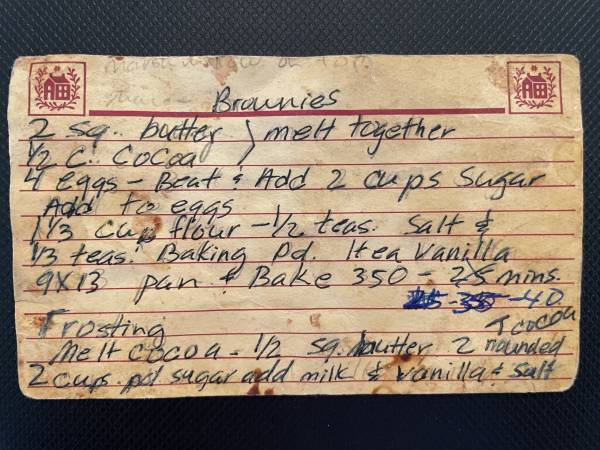 Marshmallow on top
Brownies
2 sq. butter } melt together
1/2 C. Cocoa
4 eggs - Beat & Add 2 cups Sugar
Add to eggs
1 1/3 cup flour - 1/2 teas. Salt &
1/3 teas. Baking Pd. 1 tea Vanilla
9X13 pan & Bake 350 - 25 mins.
25-35-40
Frosting
Melt cocoa - 1/2 sq. butter 2 rounded T cocoa
2 cups pd sugar add milk & vanilla & salt